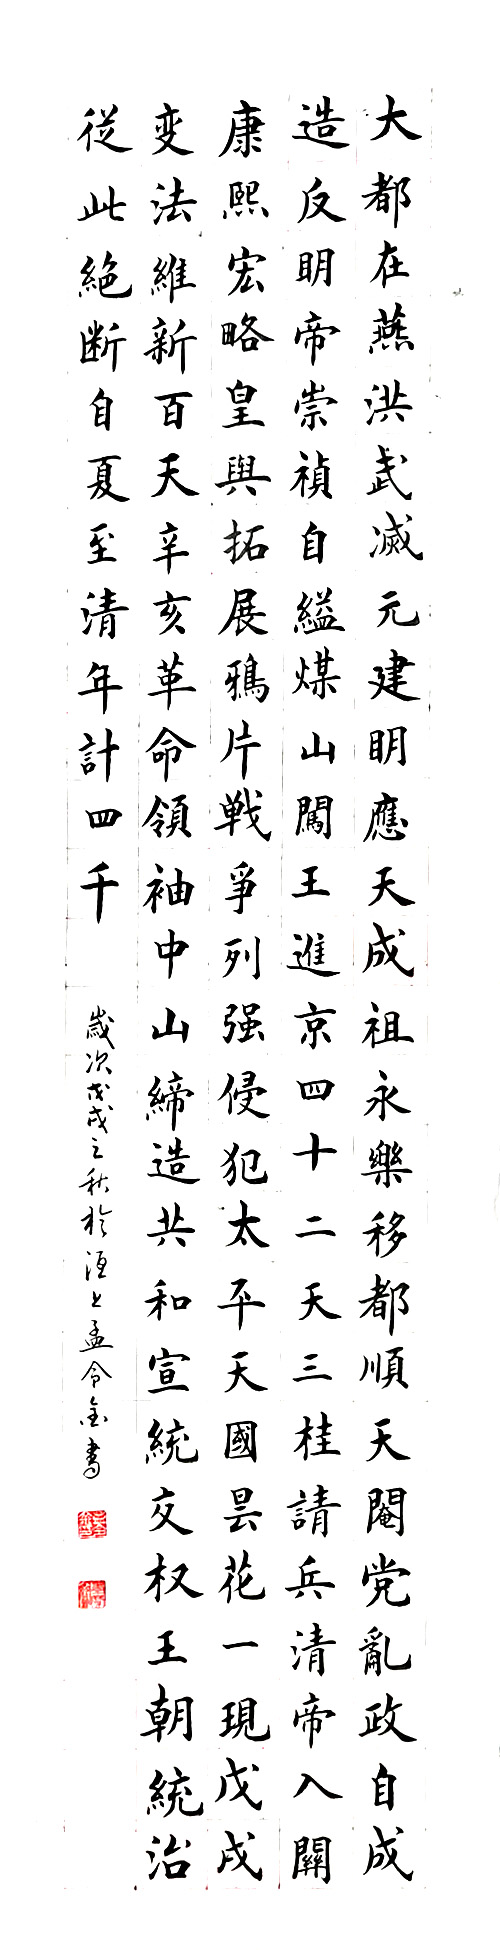 大都在燕洪武滅元建明應天成祖永樂移都順天閹党亂政自成
造反明帝崇禎自縊煤山闖王進京四十二天三桂請兵清帝入關
康熙宏略皇輿拓展鴉片戰爭列强侵犯太平天國昙花一現戊戌
变法維新百天辛亥革命領袖中山締造共和宣統交权王朝統治
從此絕断自夏至清年計四千
歲次戊戌之秋於洹上孟令金書